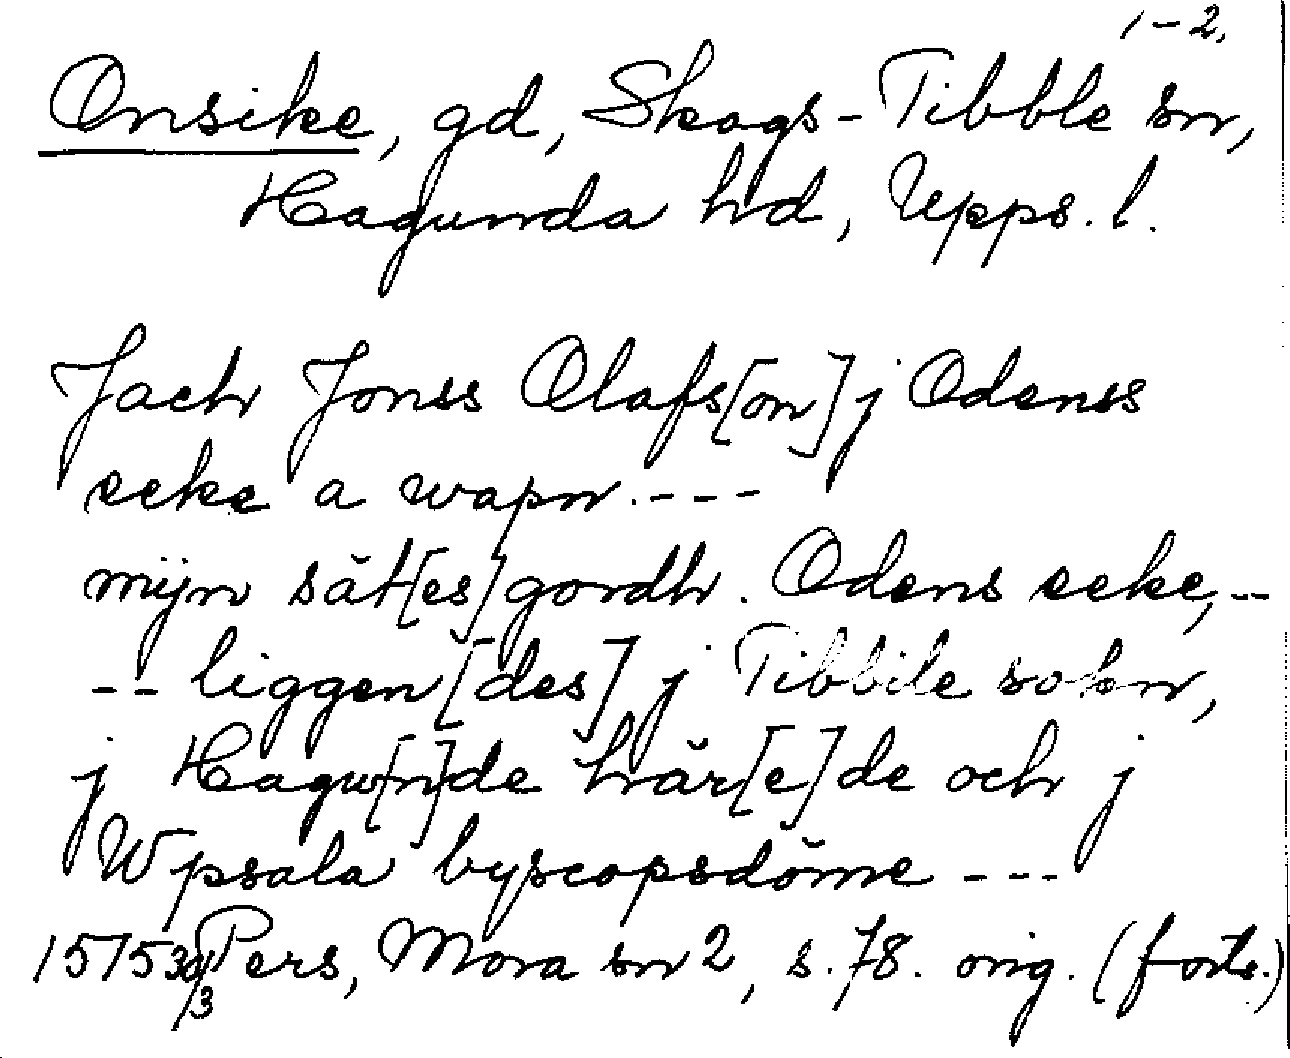 1-2.
Onsike, gd, Skogs-Tibble sn,
Hagunda hd, Upps. l.
Jach Jonss Olafs[on] j Odenss
eeke a wapn. ---
mijn sät[es]gordh. Odens eeke, --
-- liggen[des] j Tibbile sokn,
j Hagu[n]de här[e]de och j
Wpsala byscopsdöme ---
1575 30/3 Pers, Mora sn 2, s. 78. orig. (forts.)